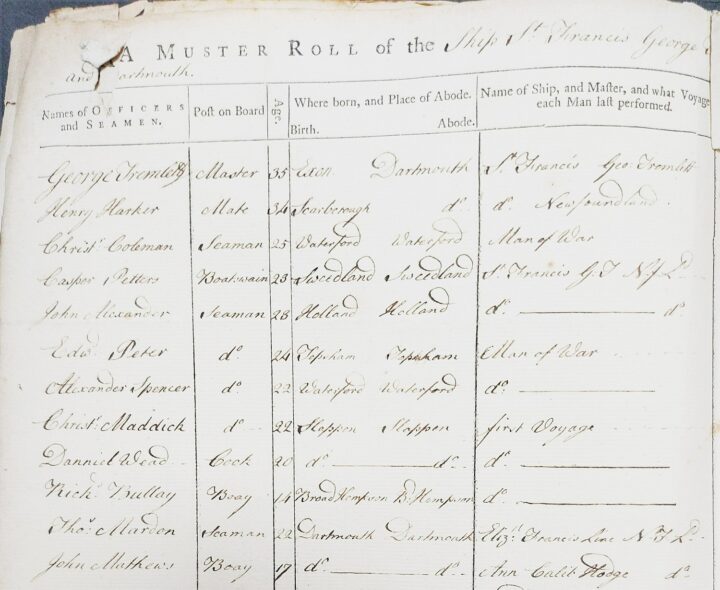 A MUSTER ROLL of the Ship St. Francis George
and Dartmouth.
Names of OFFICERS and SEAMEN. Post on Board Age. Where born, and Place of Abode. Birth. Abode. Name of Ship, and Master, and what Voyage each Man last performed.
George Tremlett Master 35 Exon Dartmouth St. Francis Geo: Tremlett
Henry Harker Mate 34 Scarborough do. do. Newfoundland.
Christr. Coleman Seaman 25 Waterford Waterford Man of War
Casper Petters Boatswain 23 Sweedland Sweedland St. Francis G.T N.f Ld.
John Alexander Seaman 28 Holland Holland do. do.
Edwd. Peter do. 24 Topsham Topsham Man of War
Alexander Spencer do. 22 Waterford Waterford do.
Christr. Maddick do. 22 Stoppen Stoppen first Voyage
Danniel Wead Cook 20 do. do. do.
Richd. Bullay Boay 14 Broad Hempson Bd. Hempson do.
Thos. Mardon Seaman 22 Dartmouth Dartmouth Elizth. Francis Line N.F Ld.
John Mathews Boay 17 do. do. Ann Calib Hodge do.